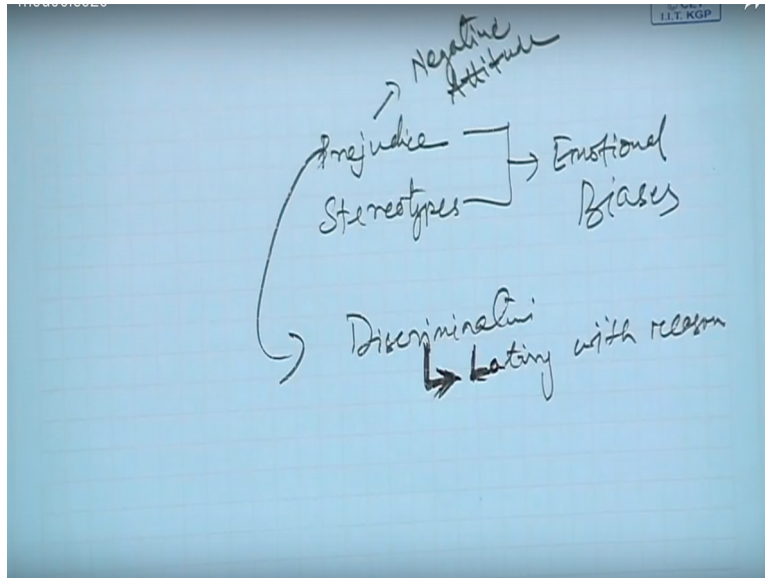 © CET
I.I.T. KGP
Negative
Attitude
Prejudice
Stereotypes
Emotional
Biases
Discrimination
with reason